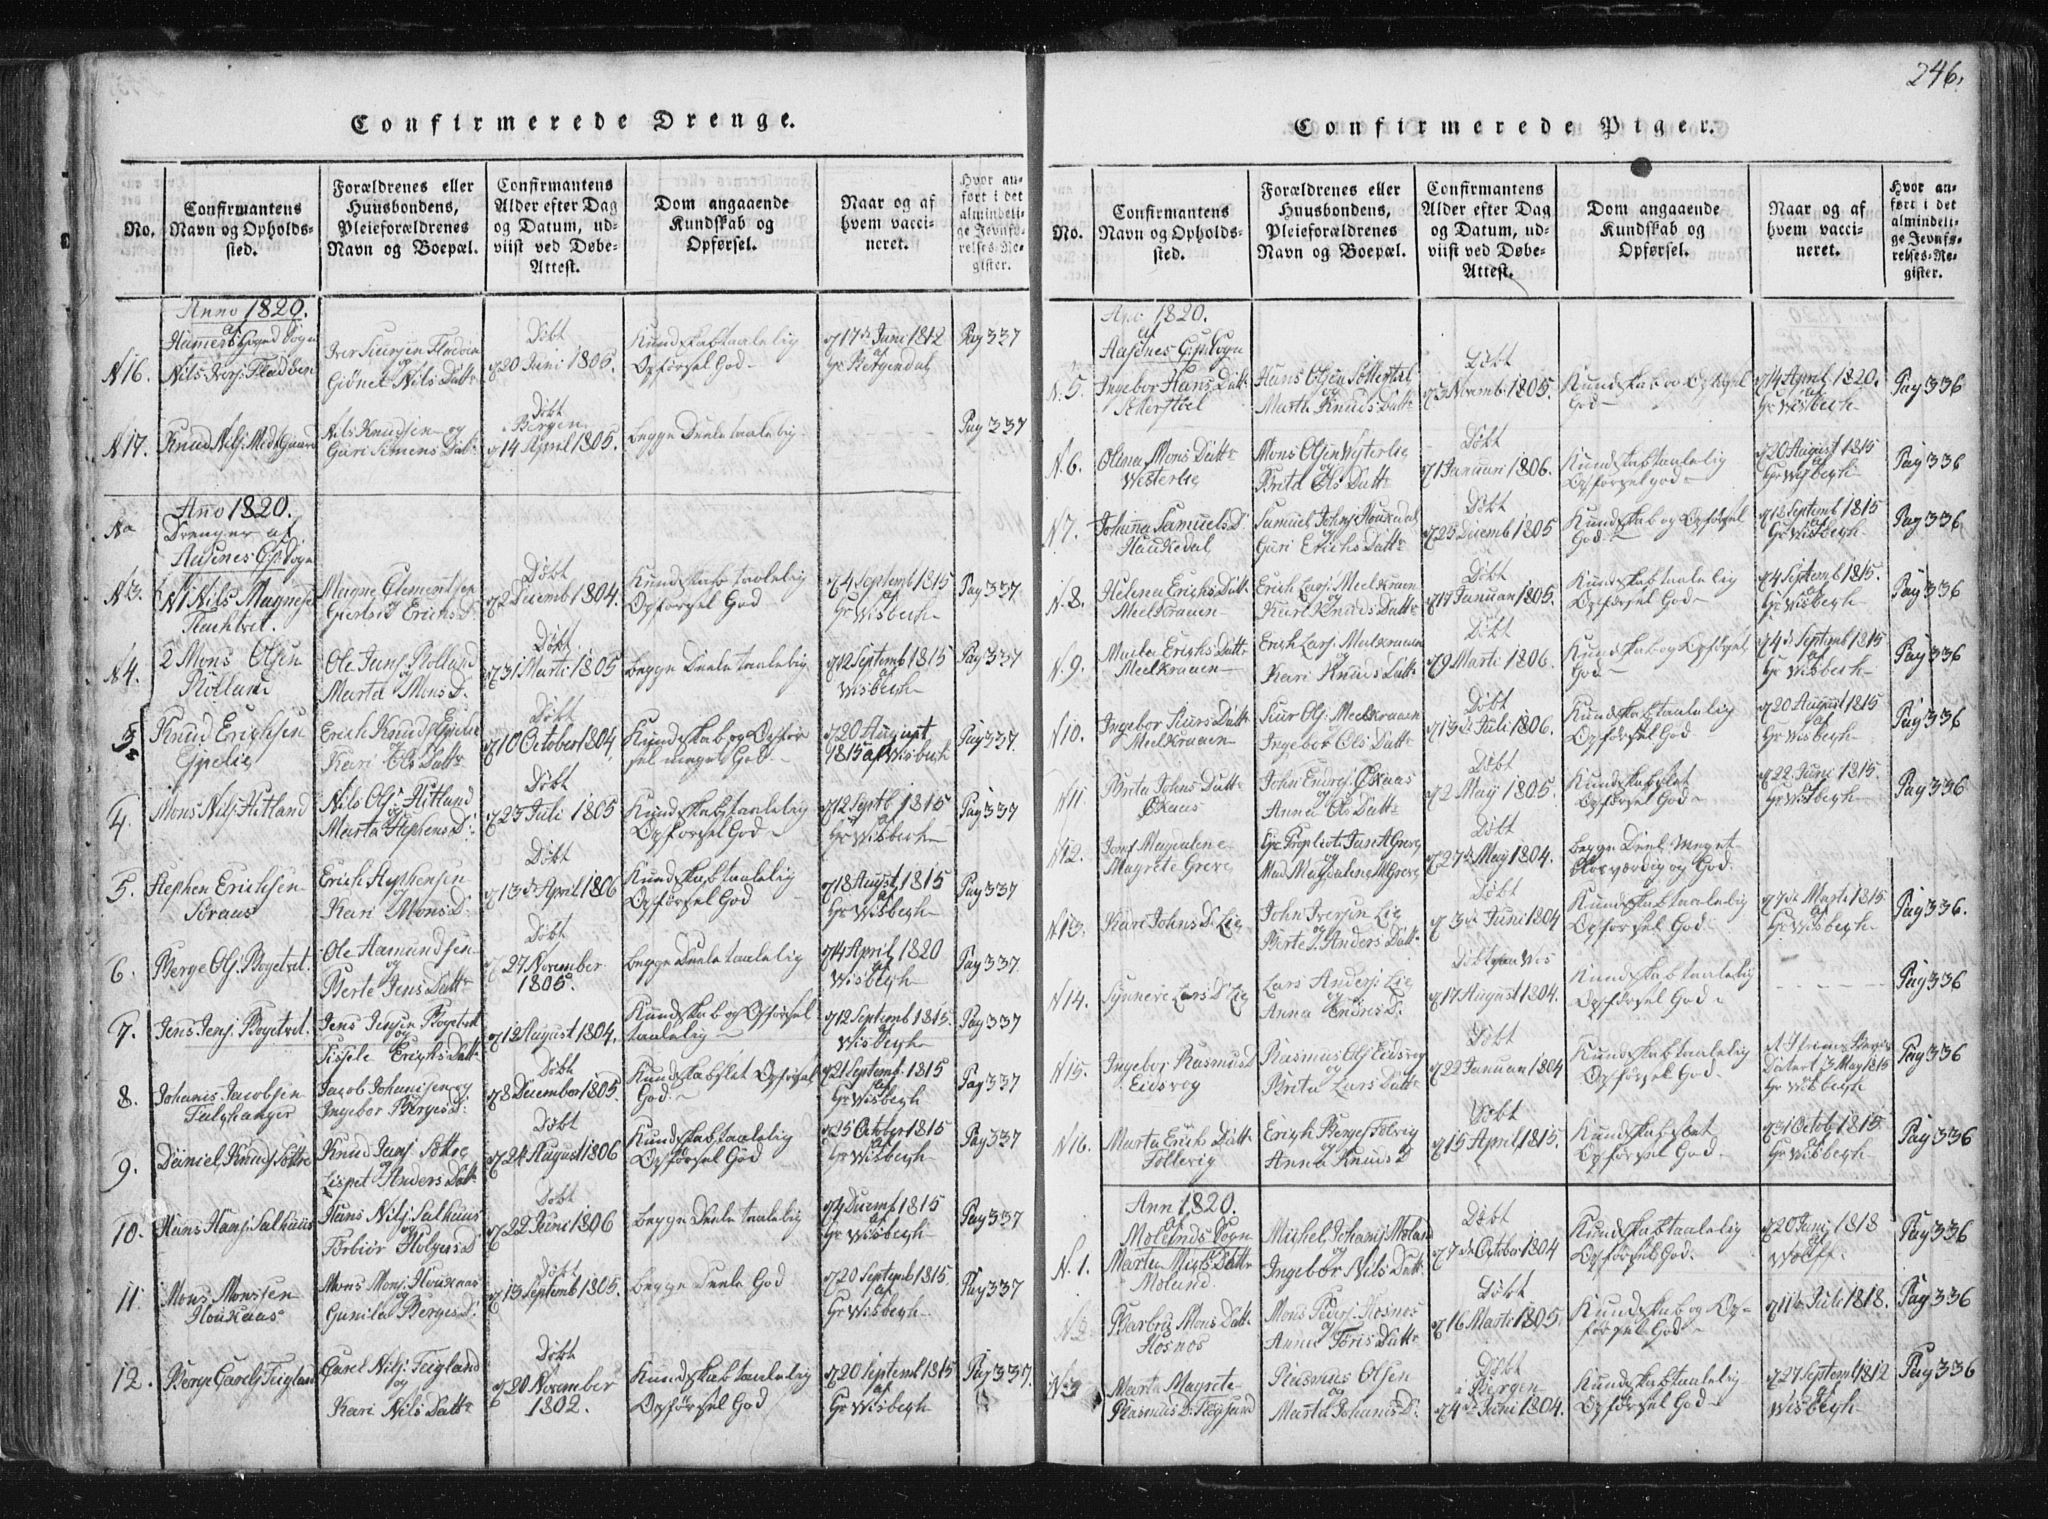 246.
Confirmerede Drenge.
No.
Confirmantens
Navn og Opholds-
sted.
Forældrenes eller
Huusbondens,
Pleieforældrenes
Navn og Boepæl.
Confirmantens
Alder efter Dag
og Datum, ud-
viist ved Døbe-
Attest.
Dom angaaende
Kundskab og
Opførsel.
Naar og af
hvem vacci-
neret.
Hvor an-
ført i det
almindeli-
ge Jevnfø-
relses-Re-
gister.
Anno 1820.
N 16.
Iver
Døbt
20 Juni 1805.
Kundskab taalelig
Opførsel God
17de Juni 1812
af
Hr Bergendal
Pag 337
N 17.
Nils Knudsen og
Guri Simens Dat.
Døbt
Bergen
14 April 1805.
begge Deele taalelig
Pag 337
Ano 1820.
Drenger af
N 3.
N1 Nils Magnesen
Magne Clementsen
og
Erichs D.
Døbt
2 Decemb 1804.
Kundskab taalelig
Opførsel God
4 Septemb 1815
af
Hr Wisbegh
Pag 337
N 4.
2 Mons Olsen
Rolland
Ole Jans. Rolland
og
Marta Mons D.
Døbt
31 Marti 1805
begge Deele taalelig
12 Septemb 1815
af
Wisbegh
Pag 337
3
Knud Erichsen
Erich Knuds
og
Kari Ols Datt.
Døbt
10 October 1804.
Kundskab og Opfør
sel meget God
20 August
1815 af Wisbegh
Pag 337
4.
Mons Nils. Hitland
Nils Ols. Hitland
og
Marta Stephens D.
Døbt
23 Juli 1805
Kundskab taalelig
Opførsel God
12 Septb 1815
af
Hr Wisbegh
Pag 337
5.
Stephen Erichsen
Soraas
Erich Stephensen
og
Kari Mons D.
Døbt
13de April 1806
Kundskab taalelig
Opførsel God
18 August 1815
af
Hr Wisbegh
Pag 337
6.
Berge Ols. Bogetvet.
Ole Aamundsen
og
Berte Jens Datt.
Døbt
27 November
1805.
begge Deele taalelig
4 April 1820
af
Wisbegh
Pag 337
7.
Jens Jens. Bogetvet
Jens Jensen Bogetvet
og
Sissele Erichs Datt.
12 August 1804.
Kundskab og Opførsel
taalelig
12 Septemb 1815.
af
Wisbegh
Pag 337
8.
Johanis Jacobsen
Jacob Johanisen og
Ingebor Berges D.
Døbt
8 December 1805.
Kundskab slet Opførsel
God.
21 Septemb. 1815
af
Hr Wisbegh
Pag 337
9.
Daniel Knuds. Sottre
Knud Jens. Sottre
og
Lispet Anders Datt.
Døbt
24 August 1806
Kundskab taalelig
Opførsel God
25 October 1815
af
Hr Wisbegh
Pag 337
10.
Hans Hans. Salhuus
Hans Nils. Salhuus
og
Torbiør Holgers D
Døbt
22 Juni 1806
begge Deele taalelig
4 Decemb 1815
af
Hr Wisbegh
Pag 337
11.
Mons Monsen
Houkaas
Mons Mons. Houkaas
og
Gunila Berges D.
Døbt
13 Septemb 1805.
begge Deele God
20 Septemb 1815
af
Hr Wisbegh
Pag 337
12.
Berge Carels. Teigland
Carel Nils. Teigland
og
Kari Nils Datt.
Døbt
20 November
1802.
Kundskab taalelig
Opførsel God
20 Septemb 1815
af
Hr Wisbegh
Pag 337
Confirmerede Piger.
No.
Confirmantens
Navn og Opholds-
sted.
Forældrenes eller
Huusbondens,
Pleieforældrenes
Navn og Boepæl.
Confirmantens
Alder efter Dag
og Datum, ud-
viist ved Døbe-
Attest.
Dom angaaende
Kundskab og
Opførsel.
Naar og af
hvem vacci-
neret.
Hvor an-
ført i det
almindeli-
ge Jevnfø-
relses-Re-
gister.
1820.
af
N. 5.
Ingebor Hans Datt.
Hans Olsen
og
Marta Knuds Datt.
Døbt
3 Novemb 1805.
Kundskab og Opførsel
God
14 April 1820.
Hr Wisbegh
Pag 336
N. 6
Olena Mons Datt.
Westerlie
Mons Olsen Westerlie
og
Brita Ols Datt.
Døbt
1 Januari 1806.
Kundskab taalelig
Opførsel god
20 August 1815
af
Hr Wisbegh
Pag 336
N. 7.
Johanna Samuels D.
Haukedal
Samuel Johns. Houkedal
Guri Erichs Datt.
Døbt
25 Decemb 1805
Kundskab og Opførsel
God
12 Septemb 1815
af
Hr Wisbegh
Pag 336
N. 8.
Helena Erichs Datt.
Meelkraaen
Erich Lars. Meelkraaen
og
Kari Knuds Datt.
Døbt
17 Januari 1805.
Kundskab taalelig
Opførsel God
4 Septemb 1815.
af
Hr Wisbegh
Pag 336
N. 9.
Erichs Datt.
Meelkraaen
Erich Lars. Meelkraaen
og
Kari Knuds Datt.
Døbt
9 Marti 1806.
Kundskab og Opførsel
God
4de Septemb 1815
af
Hr Wisbegh
Pag 336
N 10.
Ingebor Siurs Datt.
Meelkraaen
Siur Ols. Meelkraaen
og
Ingebor Ols Datt.
Døbt
13de Juli 1806.
Kundskab taalelig
Opførsel God
20 August 1815
af
Hr Wisbegh
Pag 336
N 11.
Brita Johns Datt.
Øxaas
John Endres. Øxaas
og
Anna Ols Datt.
Døbt
2 May 1805.
Kundskab slet
Opførsel God
22 Juni 1815.
af
Hr Wisbegh
Pag 336
N 12.
Jomf Magdalene
Magrete Greve
Hr Proprietr Jans A Greve
og
Mad Magdalene M Greve
Døbt
27de May 1804.
begge Deel Meget
Roeværdig og God
N 13.
Kari Johns D. Lie
John Iversen Lie
og
Berte Anders Datt.
Døbt
3de Juni 1804
Kundskab taalelig
Opførsel God
7de Marti 1815.
af
Hr Wisbegh
Pag 336.
N 14.
Synneve Lars D. Lie
Lars Anders. Lie
og
Anna Endres D.
Døbt
17 August 1804.
Kundskab taalelig
Opførsel God
Pag 336
N 15.
Ingebor Rasmus D
Eidsvog
Rasmus Ols. Eidsvog
og
Brita Lars Datt.
Døbt
22 Januari 1804
Kundskab taalelig
Opførsel God.
Datert 13 May 1815
Hr Wisbegh
Pag 336
N 16.
Marta Erichs Datt.
Erich Berges.
og
Anna Knuds D
Døbt
15 April 1815.
Kundskab slet
Opførsel God
31 Octob 1815.
af
Hr Wisbegh
Pag 336
Ann 1820.
af
Molands Sogn
N. 1.
Marta Michs Datt.
Moland.
Michel Johanis. Moland
og
Ingebor Nils Datt.
Døbt
7de October 1804
Kundskab taalelig
Opførsel God.
20 Juni 1818
af
Wolff
Pag 336
N 2.
Barbra Mons Datt.
Hosnos
Mons Peders. Hosnos
og
Anna Toris Datt.
Døbt
16 Marti 1805.
Kundskab og Op-
førsel God
11te Juli 1818.
Pag 336
Marta Magrete
Rasmus D.
Rasmus Olsen
og
Marta Johanis D.
Døbt
i Bergen
4de Juni 1804.
Kundskab taalelig
Opførsel God
27 Septemb 1812
af
Wisbegh
Pag 336